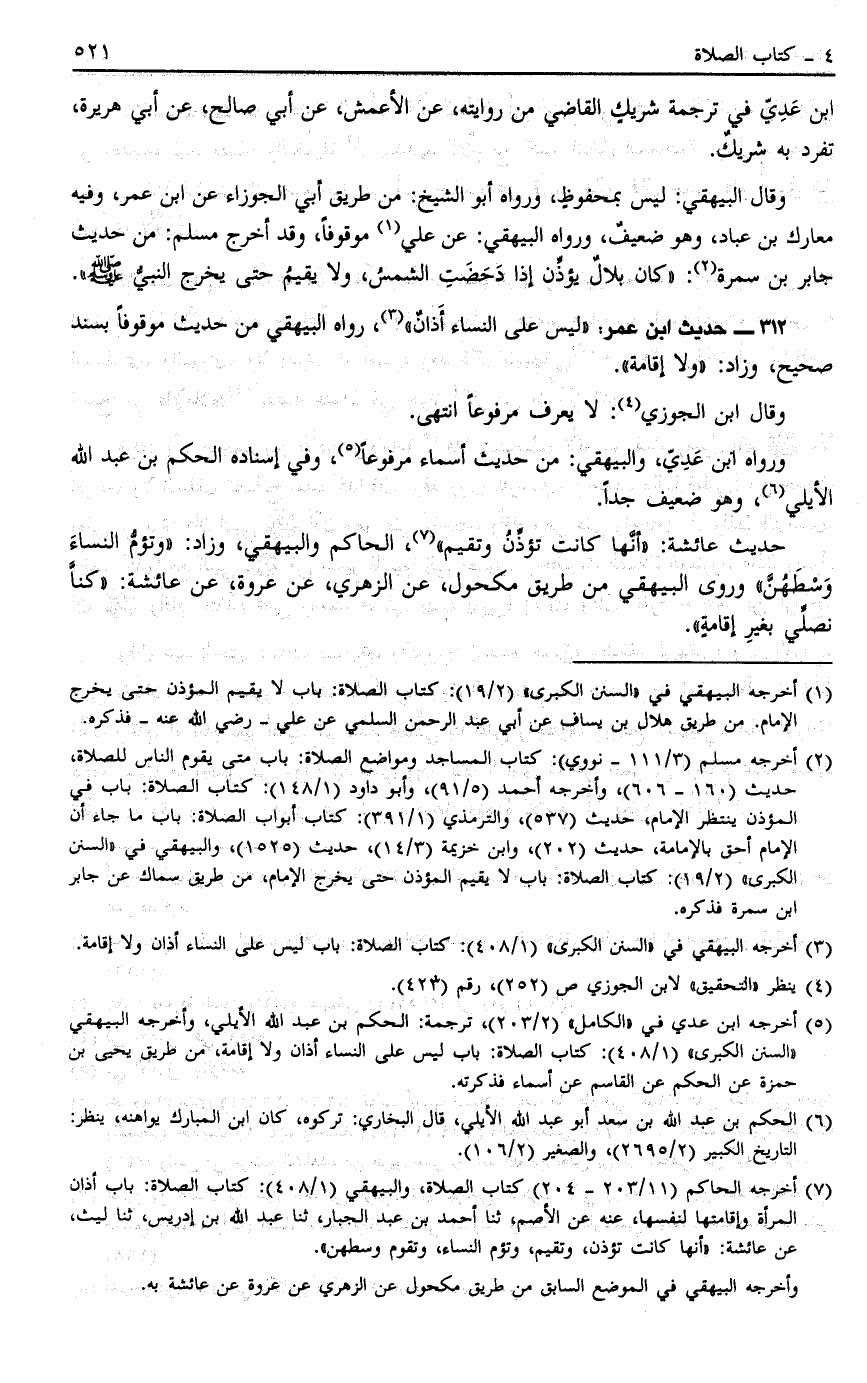 ٤ ـ كتاب الصلاة ٥٢١
ابن عَدِيّ في ترجمة شريكٍ القاضي من روايته، عن الأعمش، عن أبي صالح، عن أبي هريرة،
تفرد به شريكٌ.
وقال البيهقي: ليس بمحفوظٍ، ورواه أبو الشيخ: من طريق أبي الجوزاء عن ابن عمر، وفيه
معارك بن عباد، وهو ضعيفٌ، ورواه البيهقي: عن علي(١) موقوفاً، وقد أخرج مسلم: من حديث
جابر بن سمرة(٢): «كان بلالٌ يؤذِّن إذا دَحَضَتِ الشمسُ، ولا يقيمُ حتى يخرج النبيُّ ﷺ».
٣١٢ ـ حديث ابن عمر: «ليس على النساء أَذانٌ»(٣)، رواه البيهقي من حديث موقوفاً بسند
صحيح، وزاد: «ولا إقامة».
وقال ابن الجوزي(٤): لا يعرف مرفوعاً انتهى.
ورواه ابن عَدِيّ، والبيهقي: من حديث أسماء مرفوعاً(٥)، وفي إسناده الحكم بن عبد الله
الأيلي(٦)، وهو ضعيف جداً.
حديث عائشة: «أنَّها كانت تؤذِّنُ وتقيم»(٧)، الحاكم والبيهقي، وزاد: «وتؤمُّ النساءَ
وَسْطَهُنَّ» وروى البيهقي من طريق مكحول، عن الزهري، عن عروة، عن عائشة: «كنَّا
نصلِّي بغيرِ إقامةٍ».
(١) أخرجه البيهقي في «السنن الكبرى» (١٩/٢): كتاب الصلاة: باب لا يقيم المؤذن حتى يخرج
الإمام. من طريق هلال بن يساف عن أبي عبد الرحمن السلمي عن علي ـ رضي الله عنه ـ فذكره.
(٢) أخرجه مسلم (١١١/٣ ـ نووي): كتاب المساجد ومواضع الصلاة: باب متى يقوم الناس للصلاة،
حديث (١٦٠ ـ ٦٠٦)، وأخرجه أحمد (٩١/٥)، وأبو داود (١٤٨/١): كتاب الصلاة: باب في
المؤذن ينتظر الإمام، حديث (٥٣٧)، والترمذي (٣٩١/١): كتاب أبواب الصلاة: باب ما جاء أن
الإمام أحق بالإمامة، حديث (٢٠٢)، وابن خزيمة (١٤/٣)، حديث (١٥٢٥)، والبيهقي في «السنن
الكبرى» (١٩/٢): كتاب الصلاة: باب لا يقيم المؤذن حتى يخرج الإمام، من طريق سماك عن جابر
ابن سمرة فذكره.
(٣) أخرجه البيهقي في «السنن الكبرى» (٤٠٨/١): كتاب الصلاة: باب ليس على النساء أذان ولا إقامة.
(٤) ينظر «التحقيق» لابن الجوزي ص (٢٥٢)، رقم (٤٢٣).
(٥) أخرجه ابن عدي في «الكامل» (٢٠٣/٢)، ترجمة: الحكم بن عبد الله الأيلي، وأخرجه البيهقي
«السنن الكبرى» (٤٠٨/١): كتاب الصلاة: باب ليس على النساء أذان ولا إقامة، من طريق يحيى بن
حمزة عن الحكم عن القاسم عن أسماء فذكرته.
(٦) الحكم بن عبد الله بن سعد أبو عبد الله الأيلي، قال البخاري: تركوه، كان ابن المبارك يواهنه، ينظر:
التاريخ الكبير (٢٦٩٥/٢)، والصغير (١٠٦/٢).
(٧) أخرجه الحاكم (٢٠٣/١١ ـ ٢٠٤) كتاب الصلاة، والبيهقي (٤٠٨/١): كتاب الصلاة: باب أذان
المرأة وإقامتها لنفسها، عنه عن الأصم، ثنا أحمد بن عبد الجبار، ثنا عبد الله بن إدريس، ثنا ليث،
عن عائشة: «أنها كانت تؤذن، وتقيم، وتؤم النساء، وتقوم وسطهن».
وأخرجه البيهقي في الموضع السابق من طريق مكحول عن الزهري عن عروة عن عائشة به.